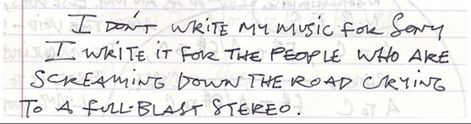 I don't WRITE MY MUSIC FOR SONY
I WRITE IT FOR THE PEOPLE WHO ARE
SCREAMING DOWN THE ROAD CRYING
TO A FULL-BLAST STEREO.